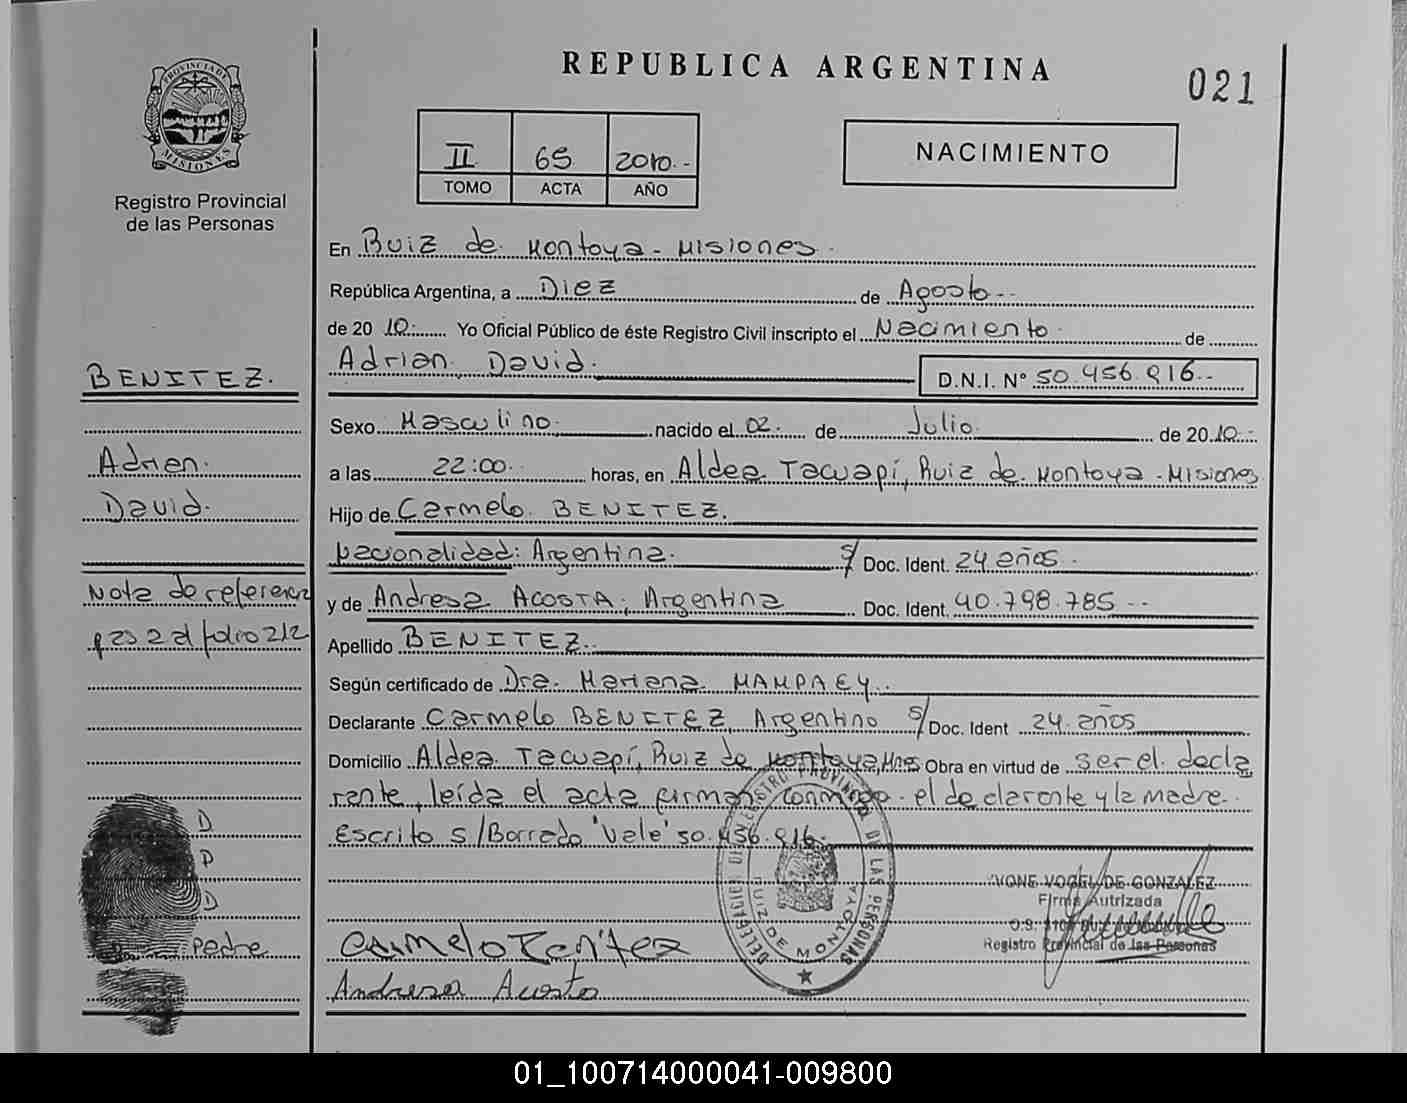 REPUBLICA ARGENTINA
021
PROVINCIA DE MISIONES
Registro Provincial
de las Personas
II 65 2010.-
TOMO ACTA AÑO
NACIMIENTO
En Ruiz de Montoya - Misiones.
República Argentina, a Diez de Agosto.-
de 20 10.- Yo Oficial Público de éste Registro Civil inscripto el Nacimiento de
Adrian David. D.N.I. Nº 50.456.816.-
Sexo Masculino nacido el 02 de Julio de 20 10.-
a las 22:00 horas, en Aldea Tacuapí, Ruiz de Montoya - Misiones
Hijo de Carmelo BENITEZ.
Nacionalidad: Argentina. s/ Doc. Ident. 24 años.
y de Andresa ACOSTA, Argentina Doc. Ident. 40.798.785.-
Apellido BENITEZ.-
Según certificado de Dra. Mariana MAMPAEY.
Declarante Carmelo BENITEZ, Argentino s/ Doc. Ident 24 años
Domicilio Aldea Tacuapí, Ruiz de Montoya, Mnes Obra en virtud de ser el decla
rante, leída el acta firman conmigo el declarante y la madre.
Escrito s/Borrado 'Vale' 50.456.816.-
BENITEZ.
Adrian
David.
Nota de referencia
pasa al folio 212
D
D
D
Padre
DELEGACION DEL REGISTRO PROVINCIAL DE LAS PERSONAS
RUIZ DE MONTOYA
YVONE VOGEL DE GONZALEZ
Firma Autrizada
Registro Provincial de las Personas
Carmelo Benitez
Andresa Acosta
01_100714000041-009800